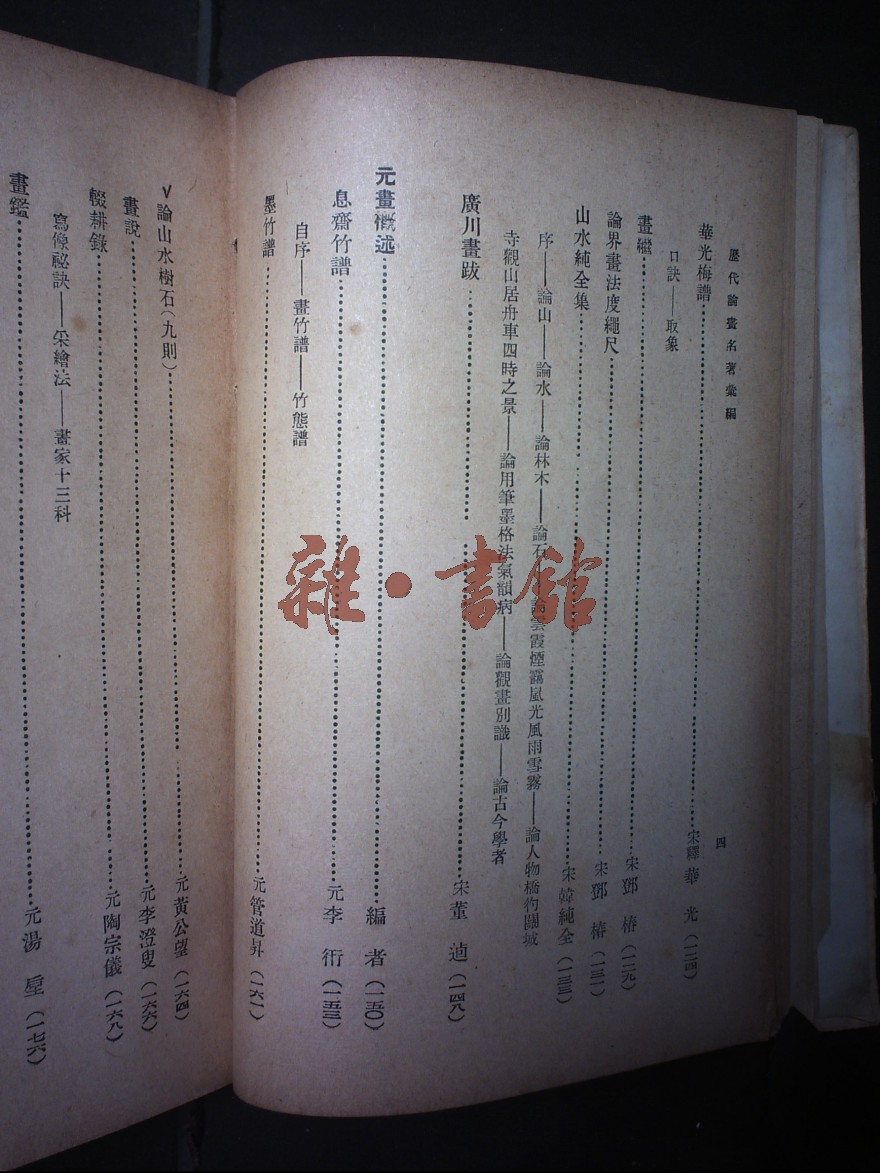 歷代論畫名著彙編
四
華光梅譜……宋釋華光(一二四)
口訣——取象
畫繼……宋鄧椿(一二九)
論界畫法度繩尺……宋鄧椿(一三一)
山水純全集……宋韓純全(一三三)
序——論山——論水——論林木——論石——論雲霞煙靄嵐光風雨雪霧——論人物橋彴關城
寺觀山居舟車四時之景——論用筆墨格法氣韻病——論觀畫別識——論古今學者
廣川畫跋……宋董逌(一四八)
元畫概述……編者(一五〇)
息齋竹譜……元李衎(一五三)
自序——畫竹譜——竹態譜
墨竹譜……元管道昇(一六一)
論山水樹石(九則)……元黃公望(一六四)
畫說……元李澄叟(一六六)
輟耕錄……元陶宗儀(一六八)
寫像祕訣——采繪法——畫家十三科
畫鑑……元湯垕(一七六)
雜·書館